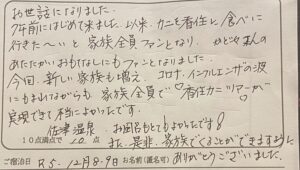 お世話になりました。
7年前にはじめて来ました。以来、カニを香住に食べに
行きた〜いと家族全員ファンとなり、かどや さんの
あたたかいおもてなしにもファンとなりました。
今回、新しい家族も増え、コロナ、インフルエンザの波
にもまれながらも 家族全員で♡香住カニツアーが♡
実現できて本当によかったです。
佐津温泉 お風呂もとてもよかったです!
10点満点で 10 点 また、是非、家族でくることができますように
ご宿泊日 R5.12月8.9日 お名前(匿名可) ありがとうございました。